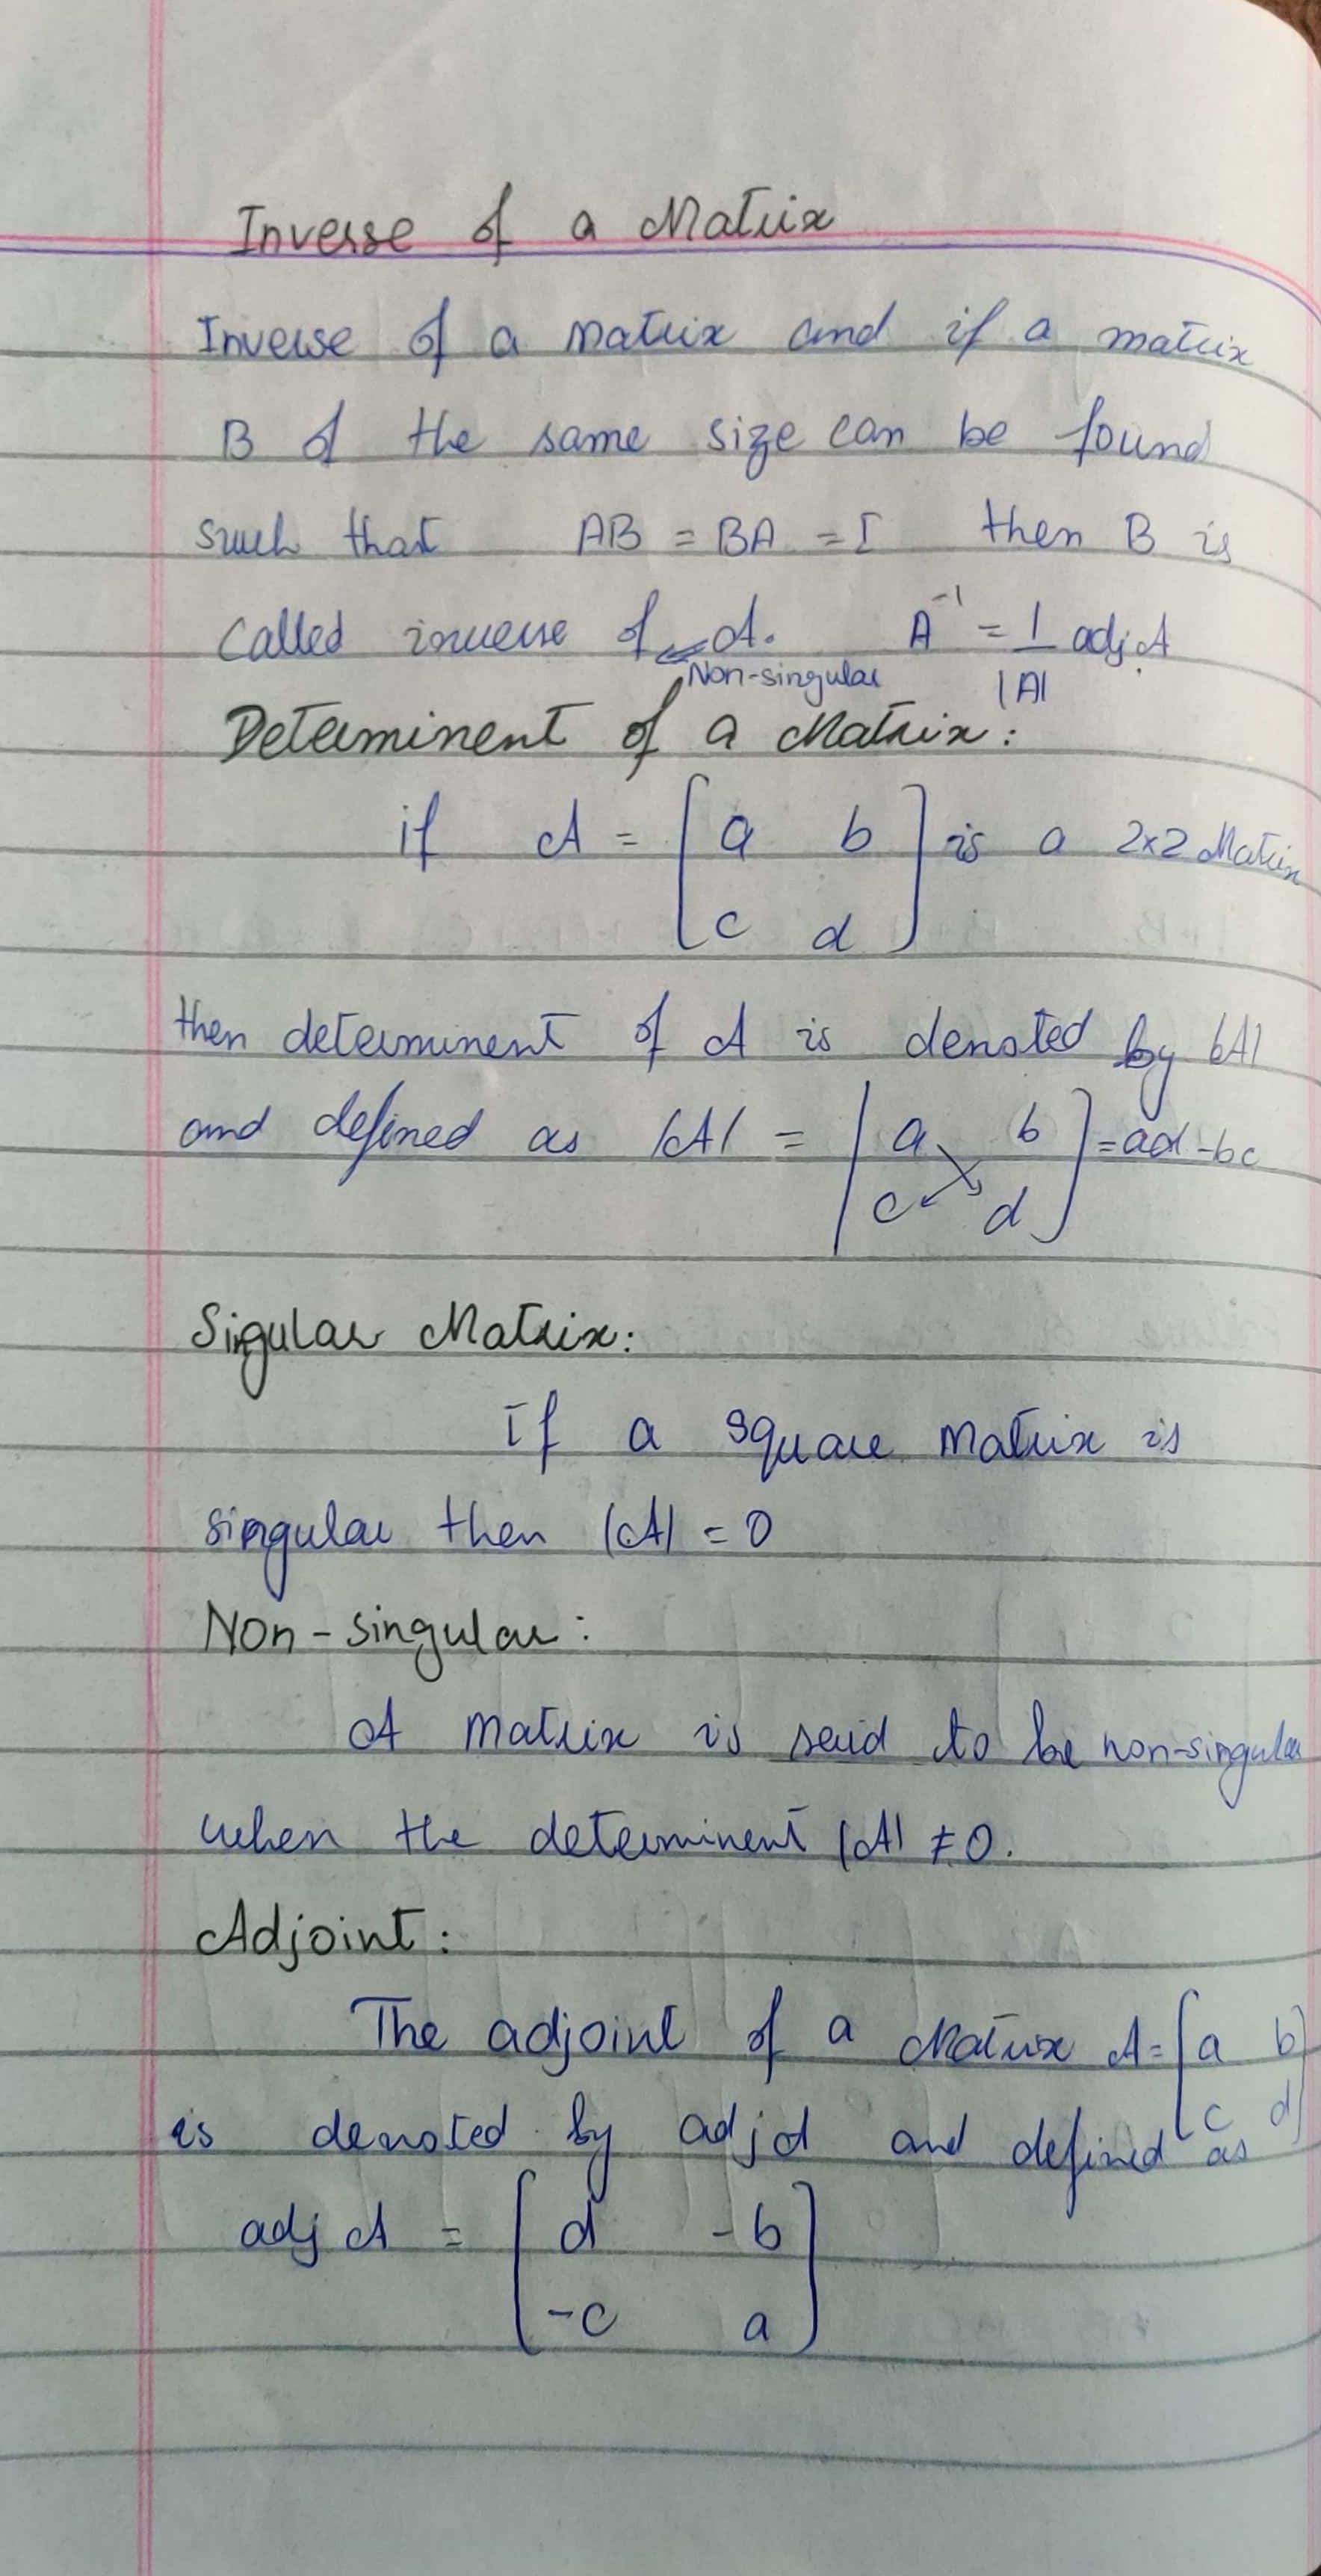 Inverse of a Matrix
Inverse of a matrix and if a matrix
B of the same size can be found
such that AB = BA = I then B is
called inverse of A. A⁻¹ = 1/|A| adj A
Non-singular
Determinent of a Matrix:
if A = [a b
c d] is a 2x2 Matrix
then determinent of A is denoted by |A|
and defined as |A| = |a b
c d] = ad - bc
Singular Matrix:
If a square matrix is
singular then |A| = 0
Non-singular:
A matrix is said to be non-singular
when the determinent |A| ≠ 0.
Adjoint:
The adjoint of a Matrix A = [a b
c d]
is denoted by adj A and defined as
adj A = [d -b
-c a]